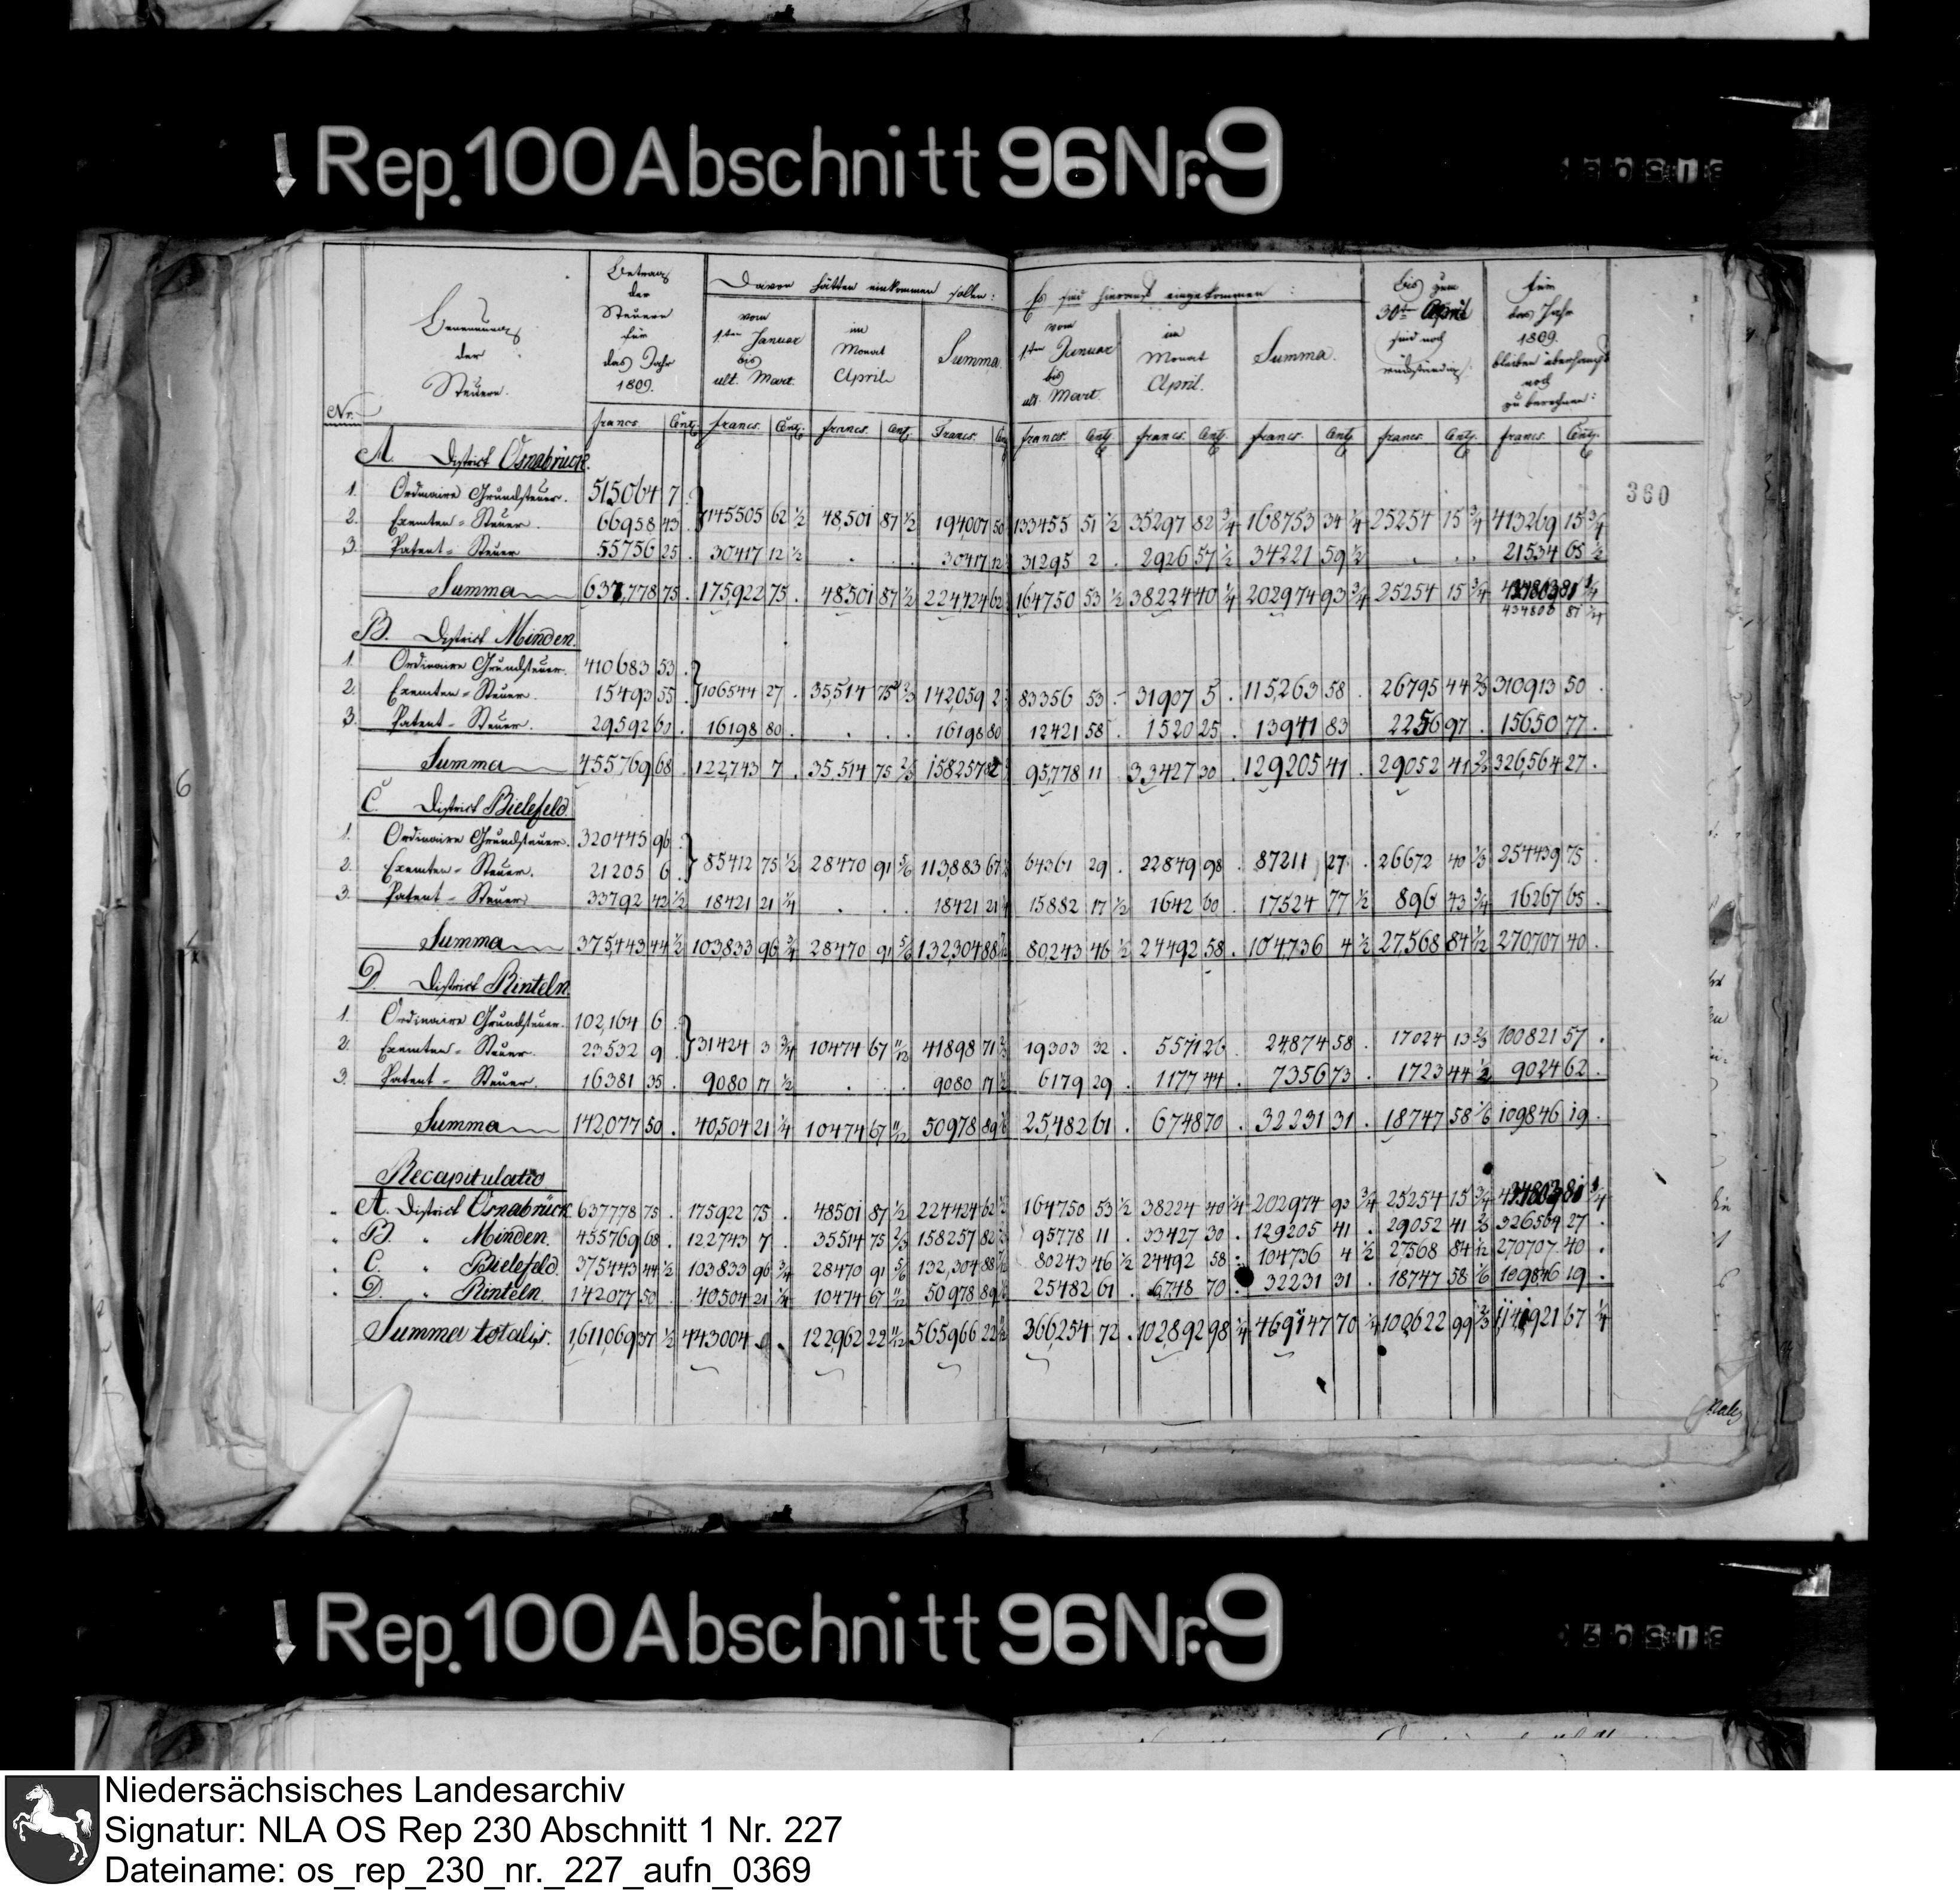 Rep. 100 Abschnitt 96 Nr. 9
Nr.
Benennung der Steuern.
Betrag der Steuern für das Jahr 1809.
Davon hätten einkommen sollen:
vom 1ten Januar bis ult. Mart.
im Monat April
Summa.
Es sind hierauf eingekommen:
vom 1ten Januar bis ult. Mart.
im Monat April.
Summa.
bis zum 30ten April sind noch rückständig.
Für das Jahr 1809. bleiben überhaupt noch zu berechnen:
francs. Cent. francs. Cent. francs. Cent. Francs. Cent. francs. Cent. francs. Cent. francs. Cent. francs. Cent. francs. Cent.
360
A. District Osnabrück.
1. Ordinaire Grundsteuer. 515064 7 .
2. Exemten-Steuer. 66958 43 . 145505 62 1/2 48,501 87 1/2 194,007 50 133455 51 1/2 35297 82 3/4 168753 34 1/4 25254 15 3/4 413269 15 3/4
3. Patent-Steuer 55756 25 . 30417 12 1/2 . . . 30417 12 31295 2 . 2926 57 1/2 34221 59 1/2 . . . 21534 65 1/2
Summa 637,778 75 . 175,922 75 . 48,501 87 1/2 224,424 62 164750 53 1/2 38224 40 1/4 202974 93 3/4 25254 15 3/4
434803 81 1/4
B. District Minden.
1. Ordinaire Grundsteuer. 410683 53 .
2. Exemten-Steuer. 15493 55 . 106544 27 . 35,514 75 2/3 142,059 2 83356 53 - 31907 5 . 115,263 58 . 26795 44 2/3 310913 50 .
3. Patent-Steuer. 29592 60 . 16198 80 . . . . 16198 80 12421 58 . 1520 25 . 13941 83 2256 97 . 15650 77 .
Summa 455769 68 . 122,743 7 . 35,514 75 2/3 158257 82 95,778 11 33427 30 . 129205 41 . 29052 41 2/3 326,564 27 .
C. District Bielefeld.
1. Ordinaire Grundsteuer. 320445 96 .
2. Exemten-Steuer. 21205 6 . 85412 75 1/2 28470 91 5/6 113,883 67 64361 29 . 22849 98 . 87211 27 . 26672 40 1/3 254439 75 .
3. Patent-Steuer 33792 42 1/2 18421 21 1/4 . . . 18421 21 15882 17 1/2 1642 60 . 17524 77 1/2 896 43 3/4 16267 65 .
Summa 375,443 44 1/2 103,833 96 3/4 28470 91 5/6 132,304 88 80,243 46 1/2 24492 58 . 104,736 4 1/2 27,568 84 1/12 270,707 40 .
D. District Rinteln.
1. Ordinaire Grundsteuer. 102,164 6 .
2. Exemten-Steuer. 23532 9 . 31424 3 3/4 10474 67 11/12 41898 71 2/3 19303 32 . 5571 26 24,874 58 . 17024 13 2/3 100821 57 .
3. Patent-Steuer. 16381 35 . 9080 17 1/2 . . . 9080 17 1/2 6179 29 . 1177 44 . 7356 73 . 1723 44 1/2 9024 62 .
Summa 142,077 50 . 40,504 21 1/4 10474 67 11/12 50978 89 25,482 61 . 6748 70 . 32231 31 . 18747 58 1/6 109846 19 .
Recapitulatio
A. District Osnabrück. 637778 75 . 175922 75 . 48501 87 1/2 224424 62 1/2 164750 53 1/2 38224 40 1/4 202974 93 3/4 25254 15 3/4
B. " Minden. 455769 68 . 122743 7 . 35514 75 2/3 158257 82 95778 11 33427 30 . 129205 41 . 29052 41 2/3 326564 27 .
C. " Bielefeld. 375443 44 1/2 103833 96 3/4 28470 91 5/6 132,304 88 80243 46 1/2 24492 58 . 104736 4 1/2 27568 84 1/12 270707 40 .
D. " Rinteln. 142077 50 . 40504 21 1/4 10474 67 11/12 50978 89 25482 61 . 6748 70 . 32231 31 . 18747 58 1/6 109846 19 .
Summa totalis. 1,611069 37 1/2 443004 . 122,962 22 11/12 565966 22 366,254 72 . 102,892 98 1/4 469147 70 1/4 100622 99 2/3 1,141921 67 1/4
Rep. 100 Abschnitt 96 Nr. 9
Niedersächsisches Landesarchiv
Signatur: NLA OS Rep 230 Abschnitt 1 Nr. 227
Dateiname: os_rep_230_nr._227_aufn_0369